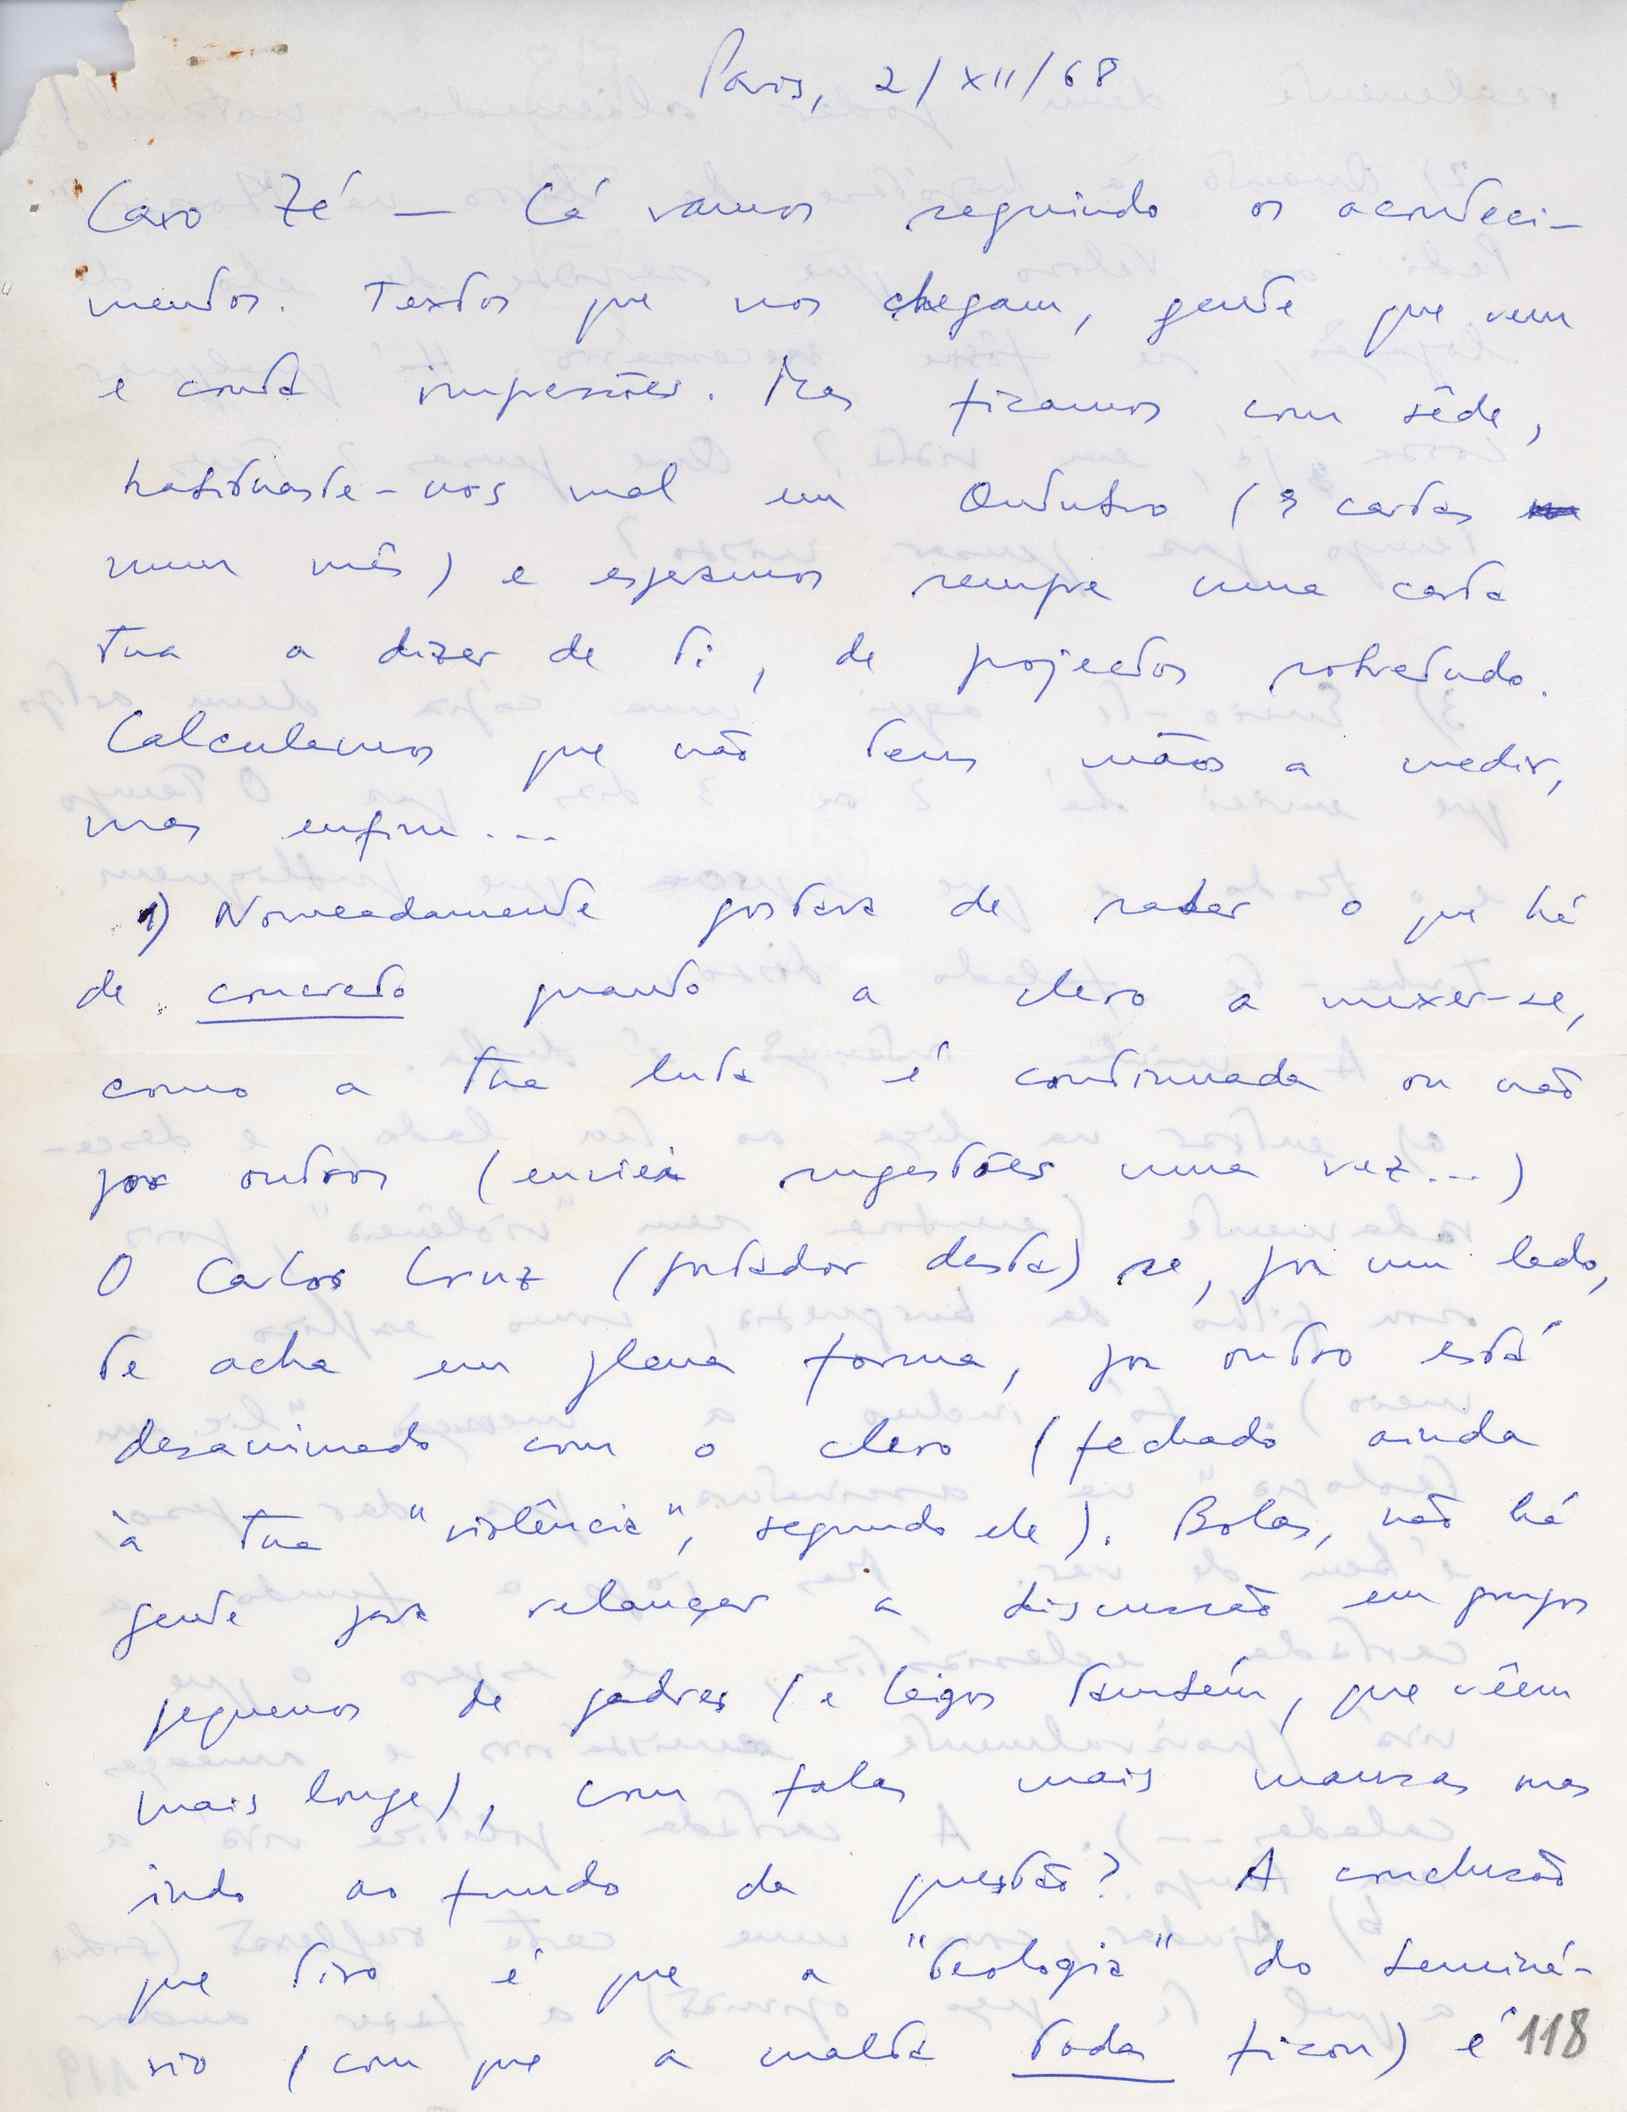 Paris, 2/XII/68
Caro Zé — Cá vamos seguindo os aconteci-
mentos. Textos que nos chegam, gente que vem
e conta impressões. Mas ficamos com sêde,
habituaste-nos mal em Outubro (3 cartas
num mês) e esperamos sempre uma carta
tua a dizer de ti, de projectos sobretudo.
Calculamos que não tens mãos a medir,
mas enfim...
1) Nomeadamente gostava de saber o que há
de concreto quanto a clero a mexer-se,
como a tua luta é continuada ou não
por outros (enviei sugestões uma vez...)
O Carlos Cruz (portador desta) se, por um lado,
te acha em plena forma, por outro está
desanimado com o clero (fechado ainda
à tua "violência", segundo ele). Bolas, não há
gente para relançar a discussão em grupos
pequenos de padres (e leigos também, que vêem
mais longe), com falas mais mansas mas
indo ao fundo da questão? A conclusão
que tiro é que a "teologia" do seminá-
rio (com que a malta toda ficou) é
118